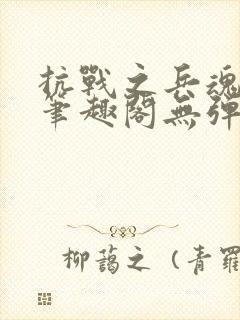 抗戰之兵魂
筆趣閣無彈
柳藹之（青羅